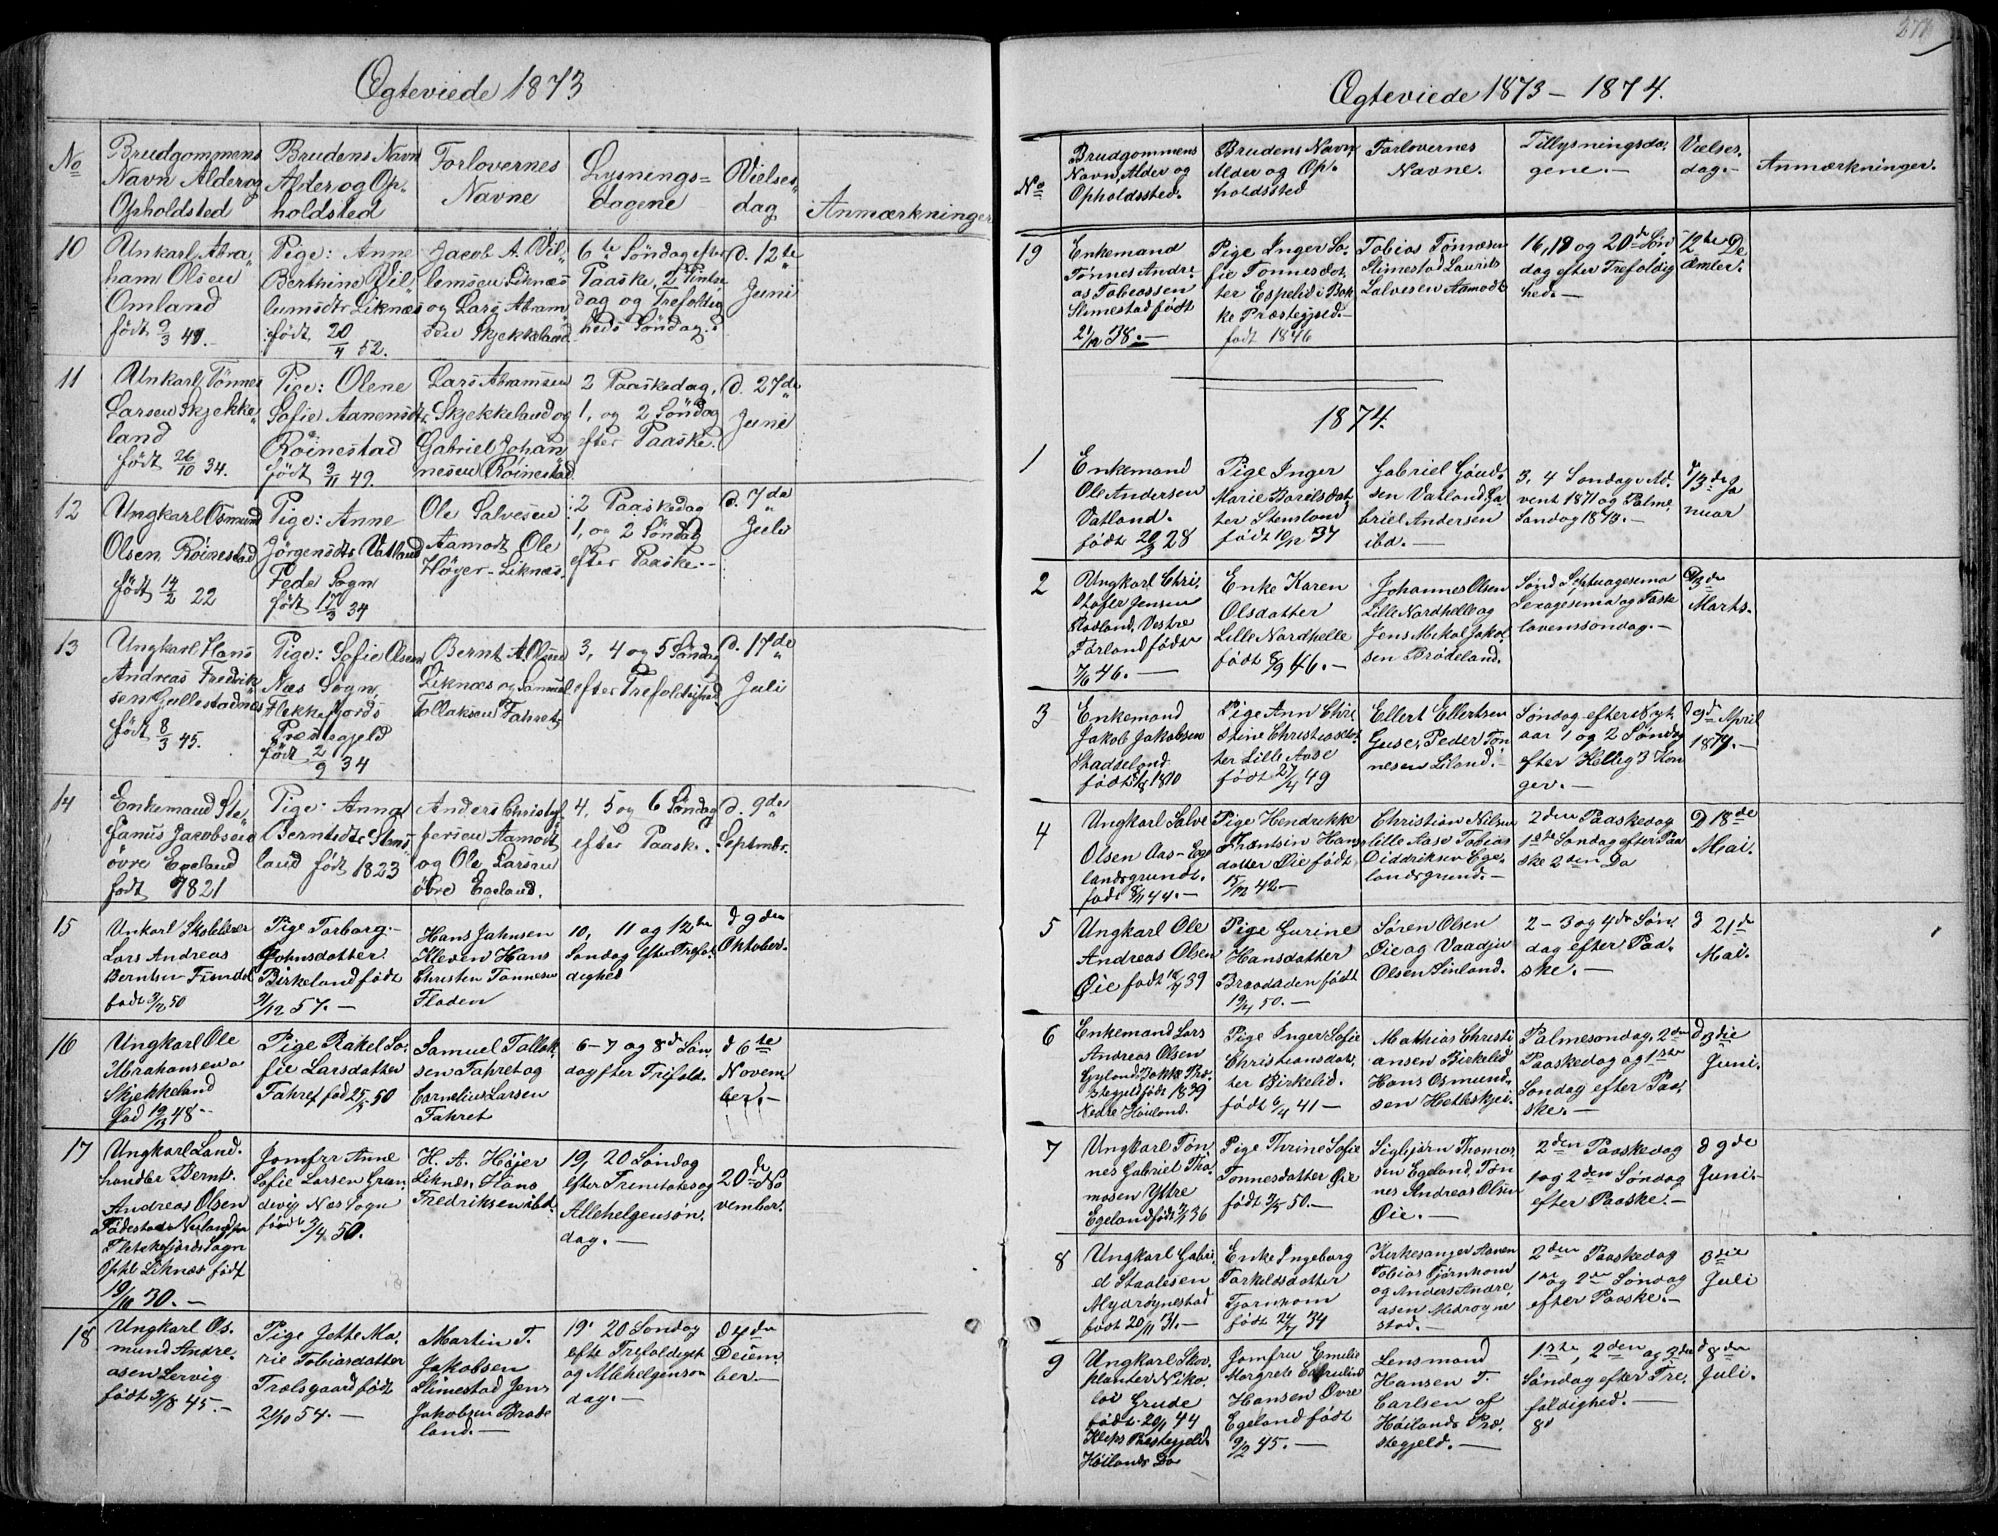 Ægteviede 1873
No
Brudgommens
Navn Alder og
Opholdsted
Brudens Navn
Alder og Op-
holdsted
Forlovernes
Navne
Lysnings=
dagene
Vielses
dag
Anmærkninger
10
Unkarl Abra
ham Olsen
Omland
født
Pige: Anne
Berthine Vil
lumsdtr Liknæs
født 20/4 52.
Jacob A. Vil
lemsen Liknæs
og Lars Abram
sen Skjekkeland
6te Söndag efter
Paaske, 2 Pintse
dag og Trefoldig
heds Söndag.
d. 12te
Juni
11
Unkarl Tönnes
Larsen Skjekke
land
født 26/10 34.
Pige: Olene
Sofie Aanensdtr
Röinestad
født 3/11 49.
Lars Abramsen
Skjekkeland og
Gabriel Johan
nesen Röinestad
2 Paaskedag,
1, og 2 Söndag
efter Paaske.
d. 27de
Juni
12
Ungkarl Osmund
Olsen Röinestad
født 14/2 22
Pige: Anne
Jörgensdtr Vatland
Fede Sogn
født 17/3 34
Ole Salvesen
Aamodt Ole
Höyer-Liknæs.
2 Paaskedag
1, og 2 Söndag
efter Paaske.
d. 7de
Juli
13
Ungkarl Hans
Andreas Fredrik
sen Gullestadnæs
født 8/3 45.
Pige: Sofie Olsen
Næs Sogn,
Flekkefjords
Præstegjeld
født 2/9 34
Bernt A. Olsen
Liknæs og Samuel
Tollaksen Fahret
3, 4 og 5 Söndag
efter Trefoldighed.
d. 17de
Juli
14
Enkemand Ste
fanus Jacobsen
övre Egeland
født 1821
Pige: Anna
Berntsdtr Stens
land født 1823
Anders Christof
fersen Aamodt
og Ole Larsen
övre Egeland.
4, 5 og 6 Söndag
efter Paaske.
d. 9de
Septmbr.
15
Unkarl Skolelærer
Lars Andreas
Berntsen
Pige Torborg
Johnsdatter
Birkeland født
9/12 57.-
Hans Jahnsen
Kleven Hans
Christen Tönnesen
Floden
10, 11 og 12te
Söndag efter Trefol
dighed
d 9den
Oktober.
16
Ungkarl Ole
Abrahamsen
Skjekkeland
fød 19/3 48.-
Pige Rakel So-
fie Larsdatter
Fahret fød 25/5 50
Samuel Tollak
sen Fahret og
Cornelius Larsen
Fahret
6-7 og 8de Sön
dag efter Trefold.
d 6te
Novem
ber.-
17
Ungkarl Land.
handler Bernt
Andreas Olsen
Födested
Flekkefjords Sogn
Ophl Liknæs født
19/10 30.-
Jomfru Anne
Sofie Larsen Gran
devig Næs Sogn
født 3/4 50.
H. A. Höjer
Liknæs, Hans
Fredriksen ibd.
19, 20 Söndag
efter Trinitates og
Allehelgenson.
dag.-
20de No
vember.
18
Ungkarl Os.
mund Andre.
asen Lervig
født 3/8 45.-
Pige Jette Ma.
rie Tobiasdatter
Trælsgaard født
2/10 54.-
Martin T.
Jakobsen
Slimestad Jens
Jakobsen Brøde
land.-
19. 20 Söndag
efte Trefoldigst
og Allehelgenson
dag.-
d 4de
Decem
ber.-
Ægteviede 1873 - 1874.
No
Brudgommens
Navn, Alder og
Opholdssted.
Brudens Navn,
Alder og Op.
holdssted
Forlovernes
Navne.
Tillysningsda.
gene.-
Vielses.
dag.-
Anmærkninger.
19
Enkemand
Tönnes Andre
as Tobiassen
Slimestad født
21/12 38.-
Pige Inger So.
fie Tönnesdat
ter Espelid i Bak
ke Præstegjeld.-
født 1846
Tobias Tönnesen
Slimestad Laurits
Salvesen Aamodt
16, 19 og 20de Sön
dag efter Trefoldig
hed.-
12te De
cember.
1874.
1
Enkemand
Ole Andersen
Vatland.
født 20/3 28
Pige Inger
Marie Borilsdat
ter Stensland
født 10/12 37
Gabriel
sen Vatland Ga
briel Andersen
ibd.-
3, 4 Söndag i Ad.
vent 1871 og Palme
Söndag 1873.-
d 13de Ja
nuar
2
Ungkarl Chri.
stofer Jensen
Rødland, Vestre
Förland født
7/6 46.-
Enke Karen
Olsdatter
Lille Nordhelle
født 8/9 46.-
Johannes Olsen
Lille Nordhelle og
Jens Mikal Jakob
sen Brödeland.
Sønd Septuagesima
Sexagesima og Faste
lavenssöndag.-
d 3de
Marts.
3
Enkemand
Jakob Jakobsen
Stadseland
Pige Ann Chri
stine Christiansdat
ter Lille Aase
født 27/4 49
Ellert Ellertsen
Guse, Peder Tön
nesen Liland.-
Söndag efter Nyt
aar 1 og 2 Söndag
efter Hellig 3 Kon
ger.-
d 9de April
1874.-
4
Ungkarl Salve
Olsen Aas-Ege
landsgrund.
født 8/11 44.-
Pige Hendrikke
Hans
datter Øie født
15/12 42-
Christian Nilsen
lille Aase Tobias
Diddriksen Ege.
landsgrund.-
2den Paaskedag
1ste Söndag efter Paa
ske 2den Do
D 18de
Mai.
5
Ungkarl Ole
Andreas Olsen
Øie født 59
Pige Gurine
Hansdatter
Braadaden født
19/4 50.-
Sören Olsen
Øie og Vaadjer
Olsen Sinland.
2-3 og 4de Sön.
dag efter Paa
ske.-
d 21de
Mai.
6
Enkemand Lars
Andreas Olsen
Gyland Bakke Præ
stegjeld født 1839
Nedre Houland.
Pige Inger Sofie
Christiansdat.
ter Birkelid.
født 6/4 41-
Mathias Christi
ansen Birkelid
Hans Osmund.
sen
Palmesöndag, 2den
Paaskedag og 1ste
Söndag efter Paa.
ske.-
d 3die
Juni.
7
Ungkarl Tön
nes Gabriel Tho
masen Yttre
Egeland født 36
Pige Thrine Sofie
Tönnesdatter Øie
født 2/5 50.-
Sigbjørn Thomas
sen Egeland, Tön
nes Andreas Olsen
Øie.-
2den Paaskedag
1 og 2den Söndag
efter Paaske.-
d 9de
Juni.
8
Ungkarl Gabri
el Staalesen
Mydröynestad
født 20/11 31.-
Enke Ingeborg
Torkeldsdatter
Tjørnhom
født 27/7 34
Kirkesanger Aanen
Tobias Tjørnhom
og Anders Andre.
asen Midröyne
stad.-
2den Paaskedag
1ste og 2den Söndag
efter Paaske.-
3die
Juli
9
Ungkarl Skov.
planter Niko.
lai Grude
født 20/1 44
Kleps Præstegjeld.
Höilands Do
Jomfru Emelie
Margrete
Hansen Övre
Egeland født
9/2 45.-
Lensmand
Hansen T.
Carlsen af
Höilands Præ
stegjeld.-
1ste, 2den og 3de
Söndag efter Tre
foldighed.-
d 8de
Juli.